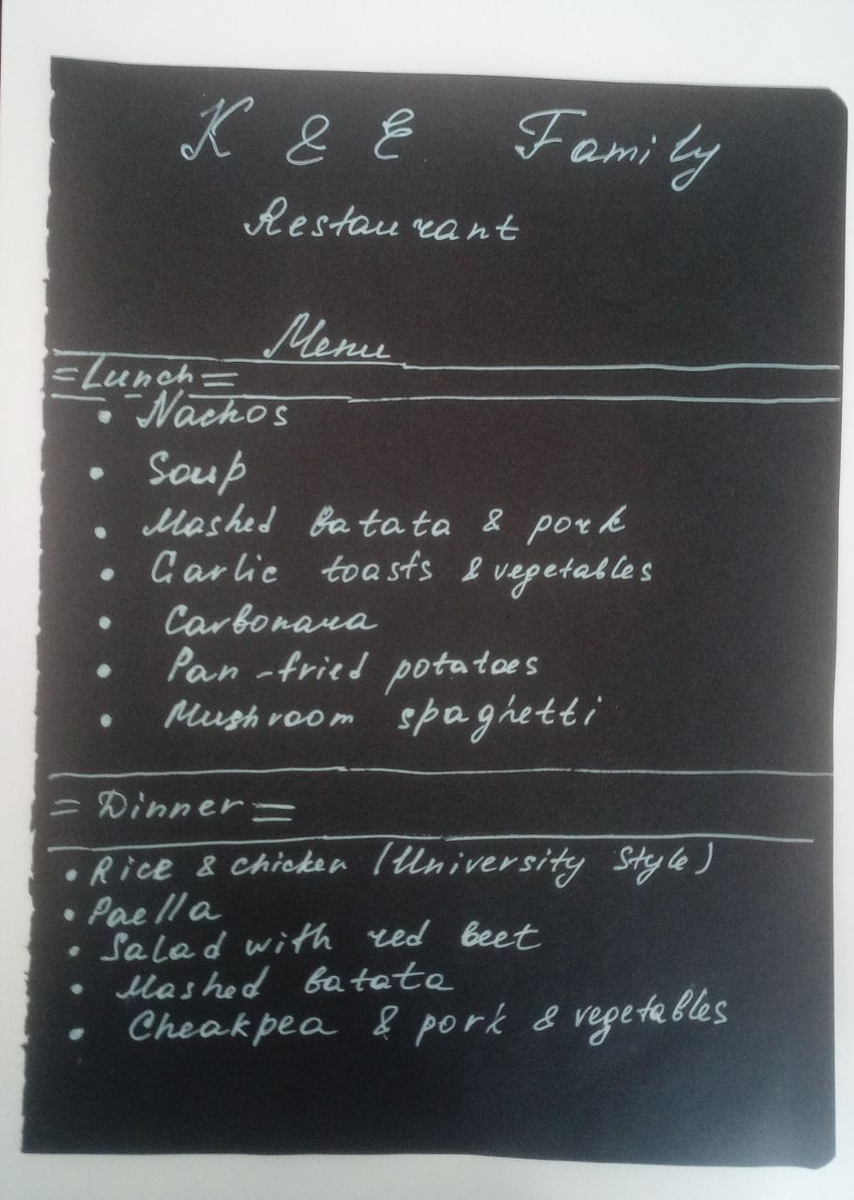 K & E Family
Restaurant
Menu
=Lunch=
• Nachos
• Soup
• Mashed batata & pork
• Garlic toasts & vegetables
• Carbonara
• Pan-fried potatoes
• Mushroom spaghetti
= Dinner =
• Rice & chicken (University Style)
• Paella
• Salad with red beet
• Mashed batata
• Cheakpea & pork & vegetables